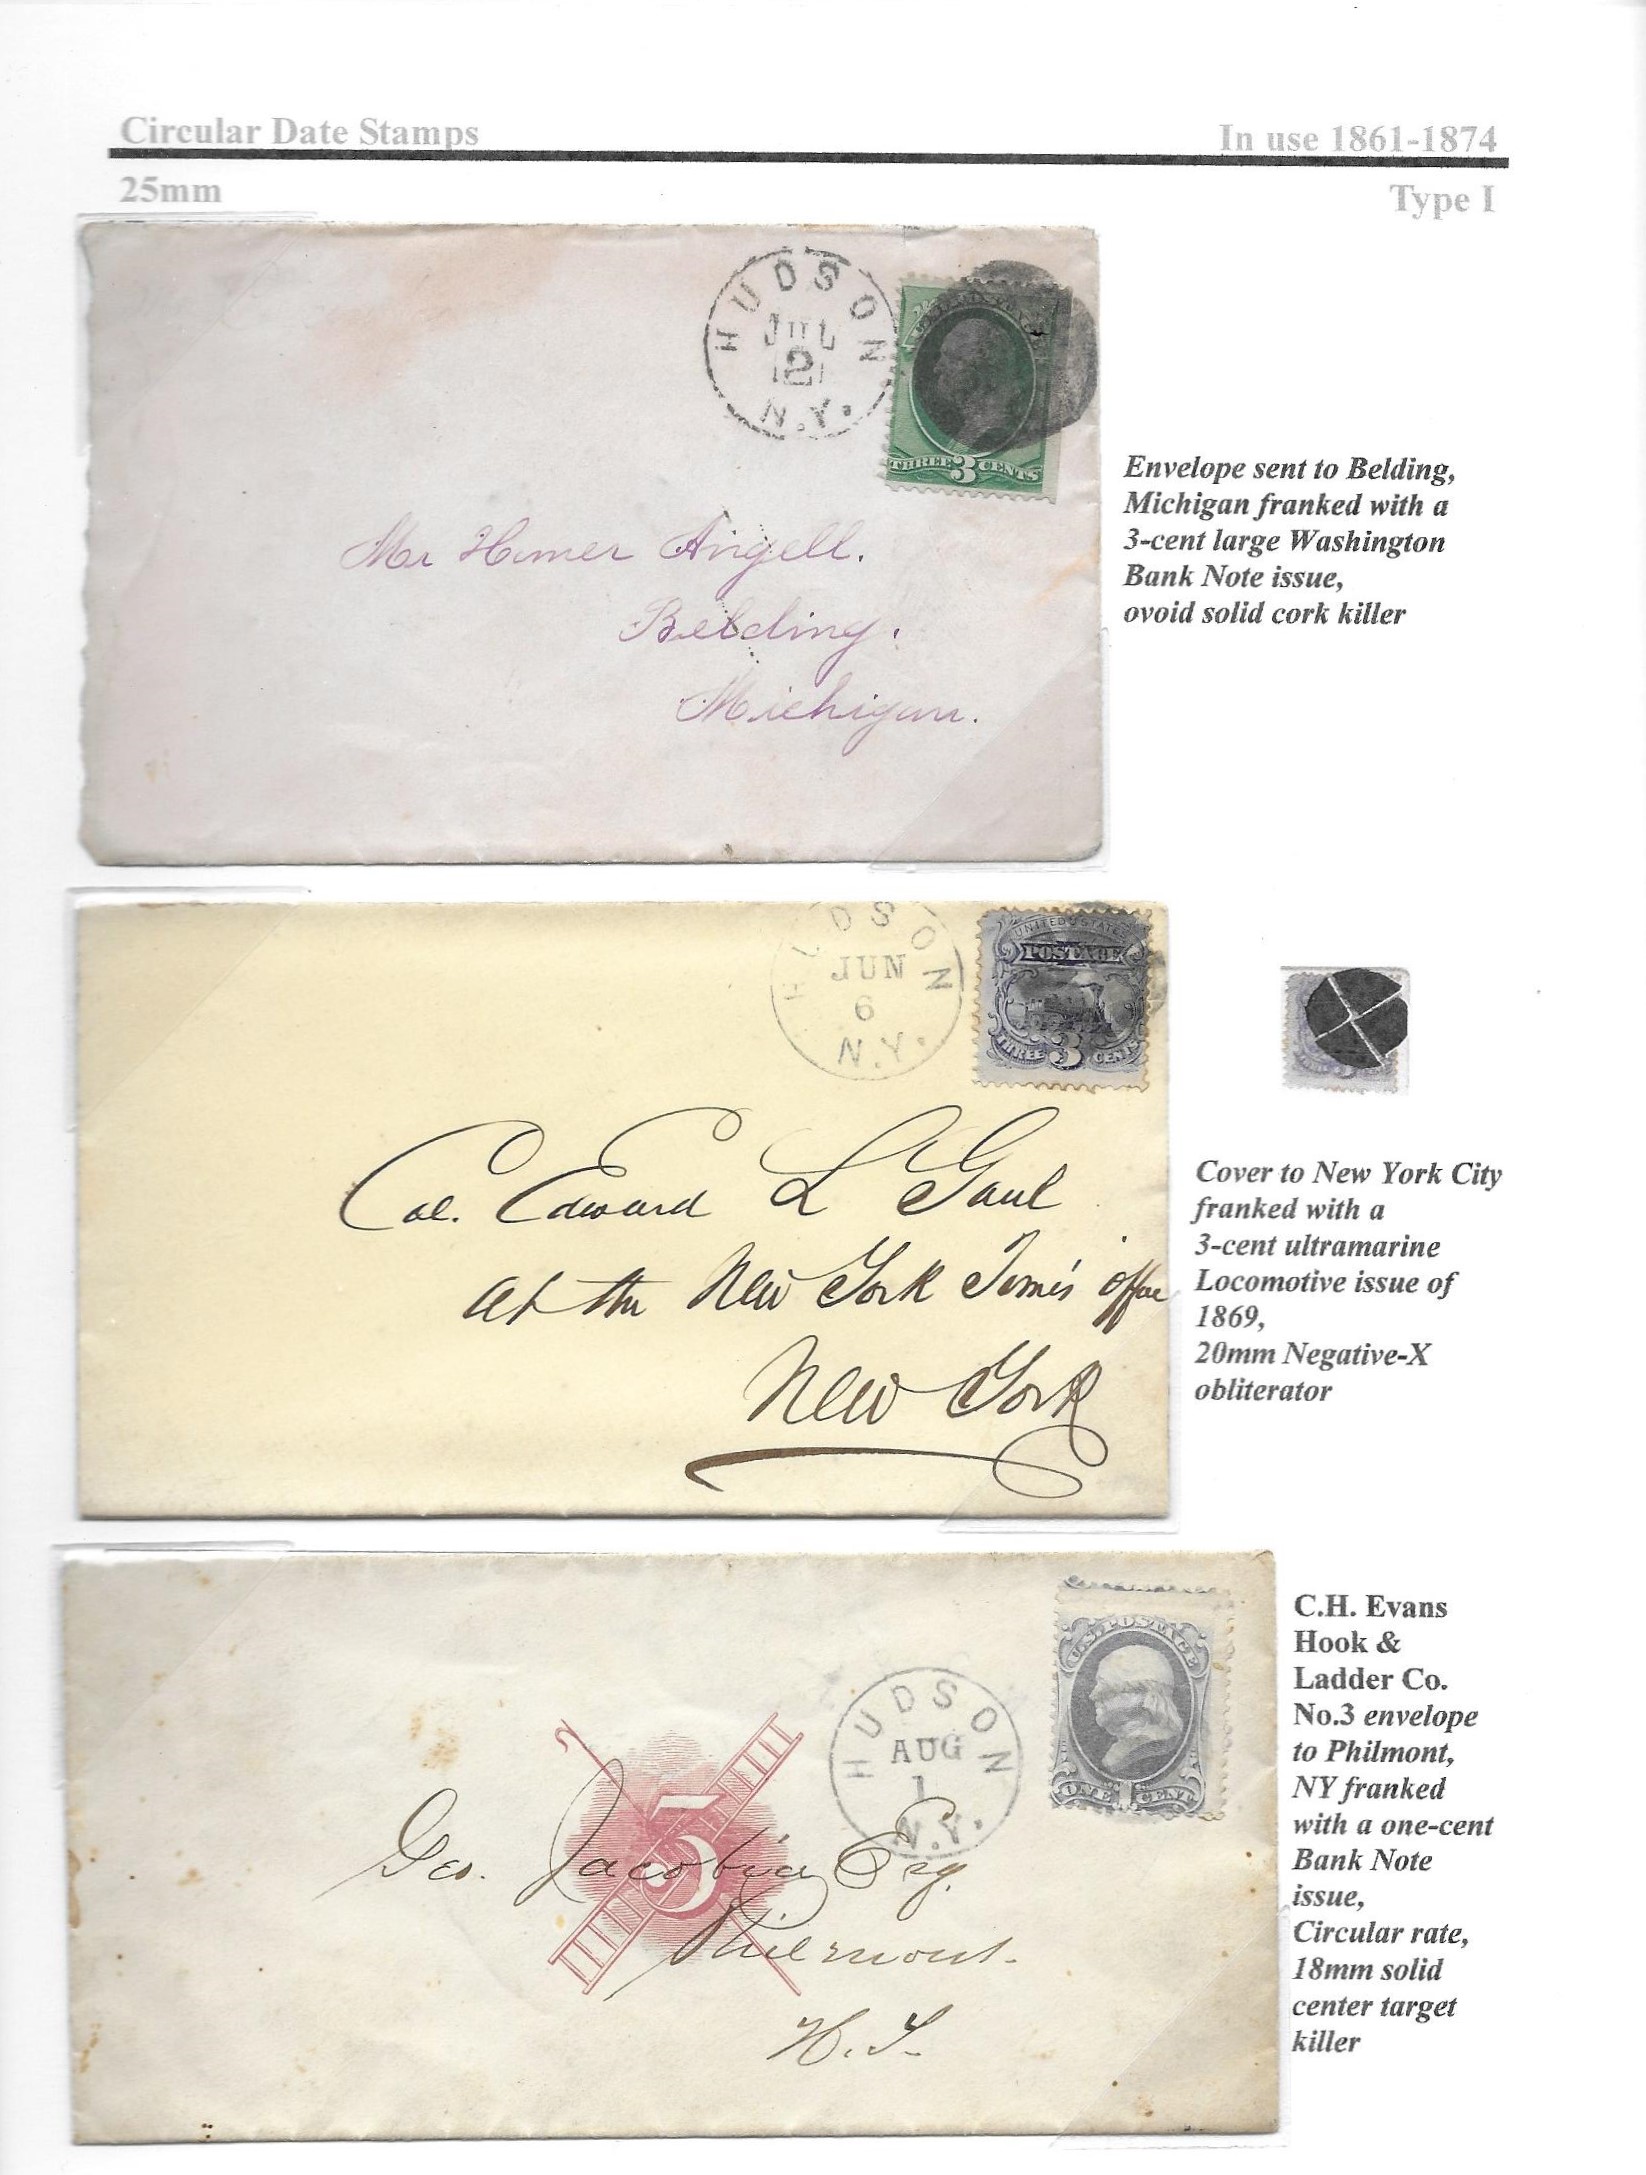 Circular Date Stamps
In use 1861-1874
25mm
Type I
HUDSON
JUL
12
N.Y.
THREE 3 CENTS
Mr Homer Angell.
Belding.
Michigan.
Envelope sent to Belding,
Michigan franked with a
3-cent large Washington
Bank Note issue,
ovoid solid cork killer
HUDSON
JUN
6
N.Y.
UNITED STATES
POSTAGE
THREE 3 CENTS
Col. Edward L Gaul
at the New York Times office
New York
Cover to New York City
franked with a
3-cent ultramarine
Locomotive issue of
1869,
20mm Negative-X
obliterator
HUDSON
AUG
1
N.Y.
U.S. POSTAGE
ONE 1 CENT
3
Geo. Jacobia Esq.
Philmont.
N.Y.
C.H. Evans
Hook &
Ladder Co.
No.3 envelope
to Philmont,
NY franked
with a one-cent
Bank Note
issue,
Circular rate,
18mm solid
center target
killer